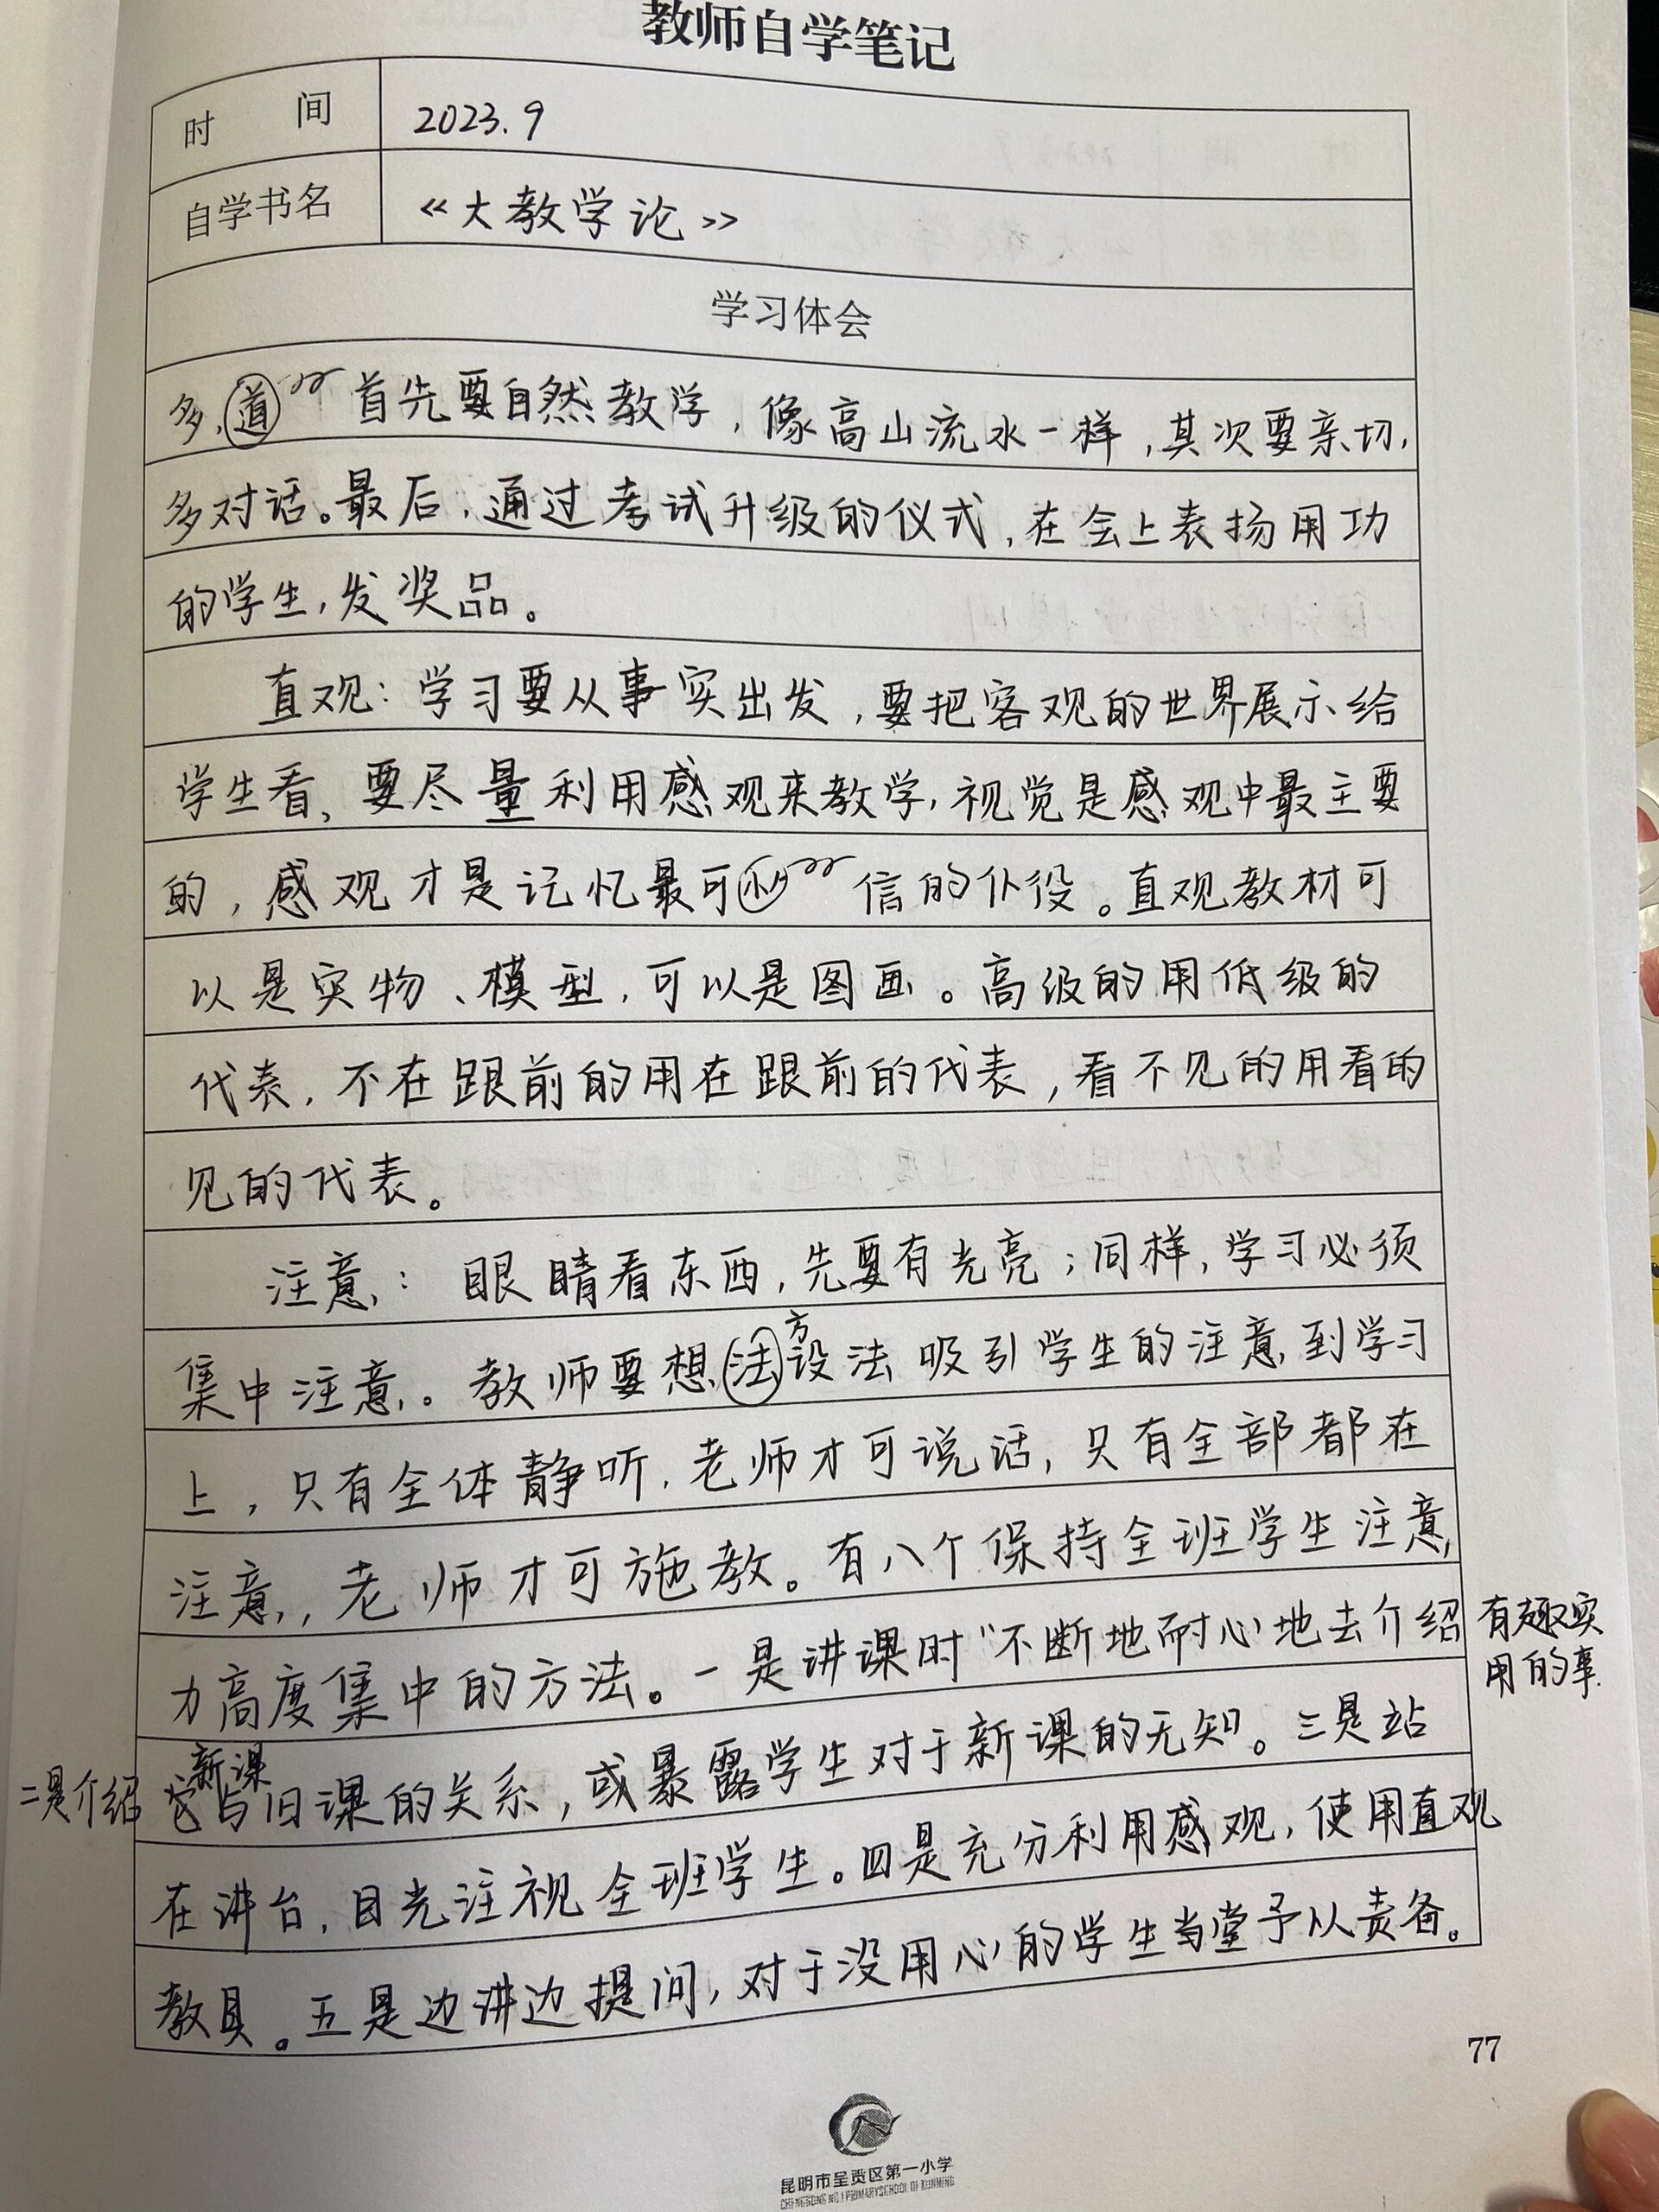 教师自学笔记
时 间 2023.9
自学书名 《大教学论》
学习体会
多,道 首先要自然教学,像高山流水一样,其次要亲切,
多对话。最后,通过考试升级的仪式,在会上表扬用功
的学生,发奖品。
直观:学习要从事实出发,要把客观的世界展示给
学生看,要尽量利用感观来教学,视觉是感观中最主要
的,感观才是记忆最可 信的仆役。直观教材可
以是实物、模型,可以是图画。高级的用低级的
代表,不在跟前的用在跟前的代表,看不见的用看的
见的代表。
注意:眼睛看东西,先要有光亮;同样,学习必须
方
集中注意。教师要想法设法吸引学生的注意到学习
上,只有全体静听,老师才可说话,只有全部都在
注意,老师才可施教。有八个保持全班学生注意
力高度集中的方法。一是讲课时"不断地耐心地去介绍 有趣实
用的事.
新课
二是介绍 它与旧课的关系,或暴露学生对于新课的无知。三是站
在讲台,目光注视全班学生。四是充分利用感观,使用直观
教具。五是边讲边提问,对于没用心的学生当堂予以责备。
77
昆明市呈贡区第一小学